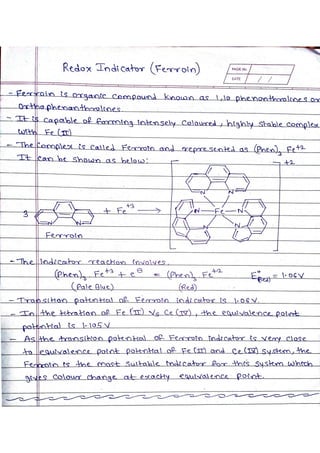 Redox Indicator (Ferroin)
PAGE No.
DATE / /
- Ferroin is organic compound known as 1,10 phenonthrolines or
Orthophenanthrolines.
- It is capable of forming Intensely Coloured, highly stable complex
with Fe (II)
- The Complex is called Ferroin and represented as (Phen)3 Fe+2
It can be shown as below:
+2
3 + Fe+2 →
N N
N N
N Fe N
N N
Ferroin
- The indicator reaction involves.
(Phen)3 Fe+3 + e⊖ = (Phen)3 Fe+2 E°Red = 1.06V
(Pale Blue) (Red)
- Transition potential of Ferroin indicator is 1.06V.
- In the titration of Fe (II) Vs Ce (IV), the equivalence point
potential is 1.105V
- As the transition potential of Ferroin Indicator is very close
to equivalence point potential of Fe (II) and Ce (IV) system, the
Ferroin is the most suitable indicator for this system which
gives colour change at exactly equivalence point.